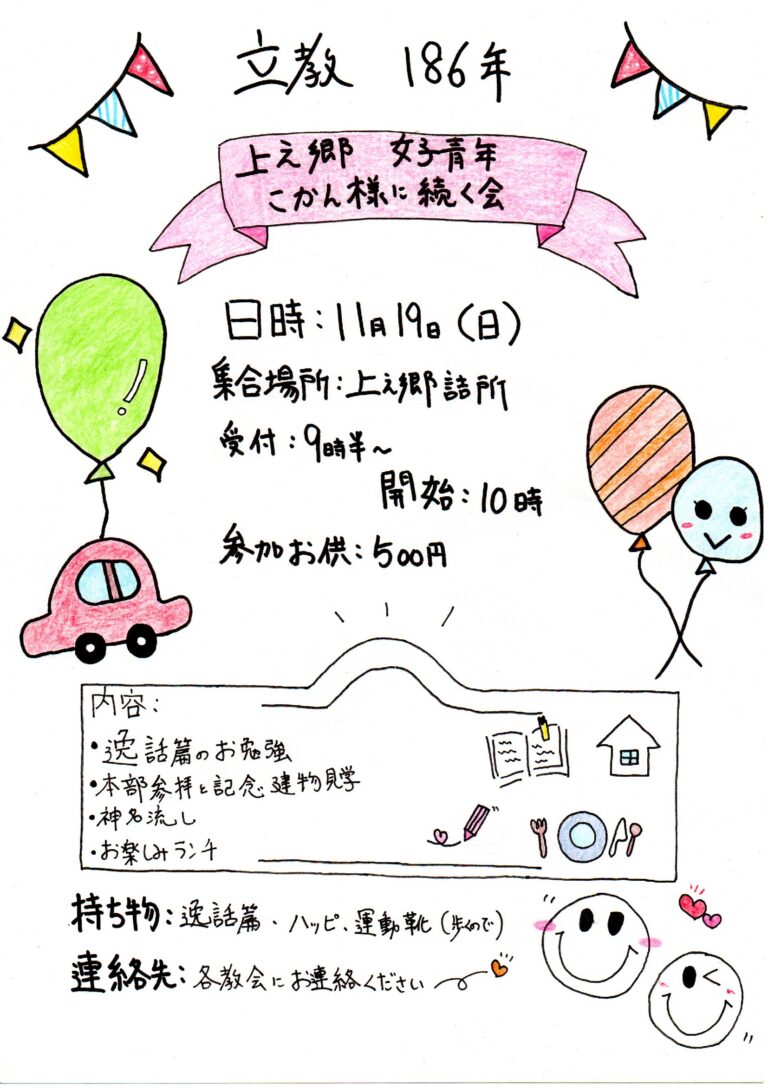 立教 186年
上之郷 女子青年
こかん様に続く会
日時：11月19日（日）
集合場所：上之郷詰所
受付：9時半～
開始：10時
参加お供：500円
内容：
・逸話篇のお勉強
・本部参拝と記念建物見学
・神名流し
・お楽しみランチ
持ち物：逸話篇、ハッピ、運動靴（歩くので）
連絡先：各教会にお連絡ください